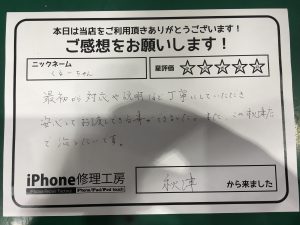 本日は当店をご利用頂きありがとうございます!
ご感想をお願いします!
ニックネーム
くるーちゃん
星評価 ☆☆☆☆☆
最初から対応や説明など丁寧にしていただき
安心してお渡しできる事ができました。また、この秋津店
で治したいです。
iPhone修理工房
iPhone/iPad/iPod touch
秋津 から来ました